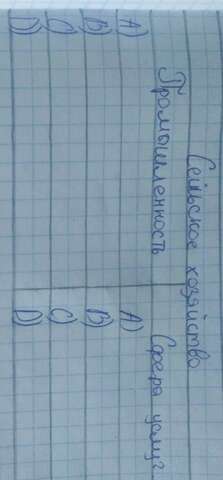 Сельское хозяйство
Промышленность Сфера услуг
A) A)
B) B)
C) C)
D) D)